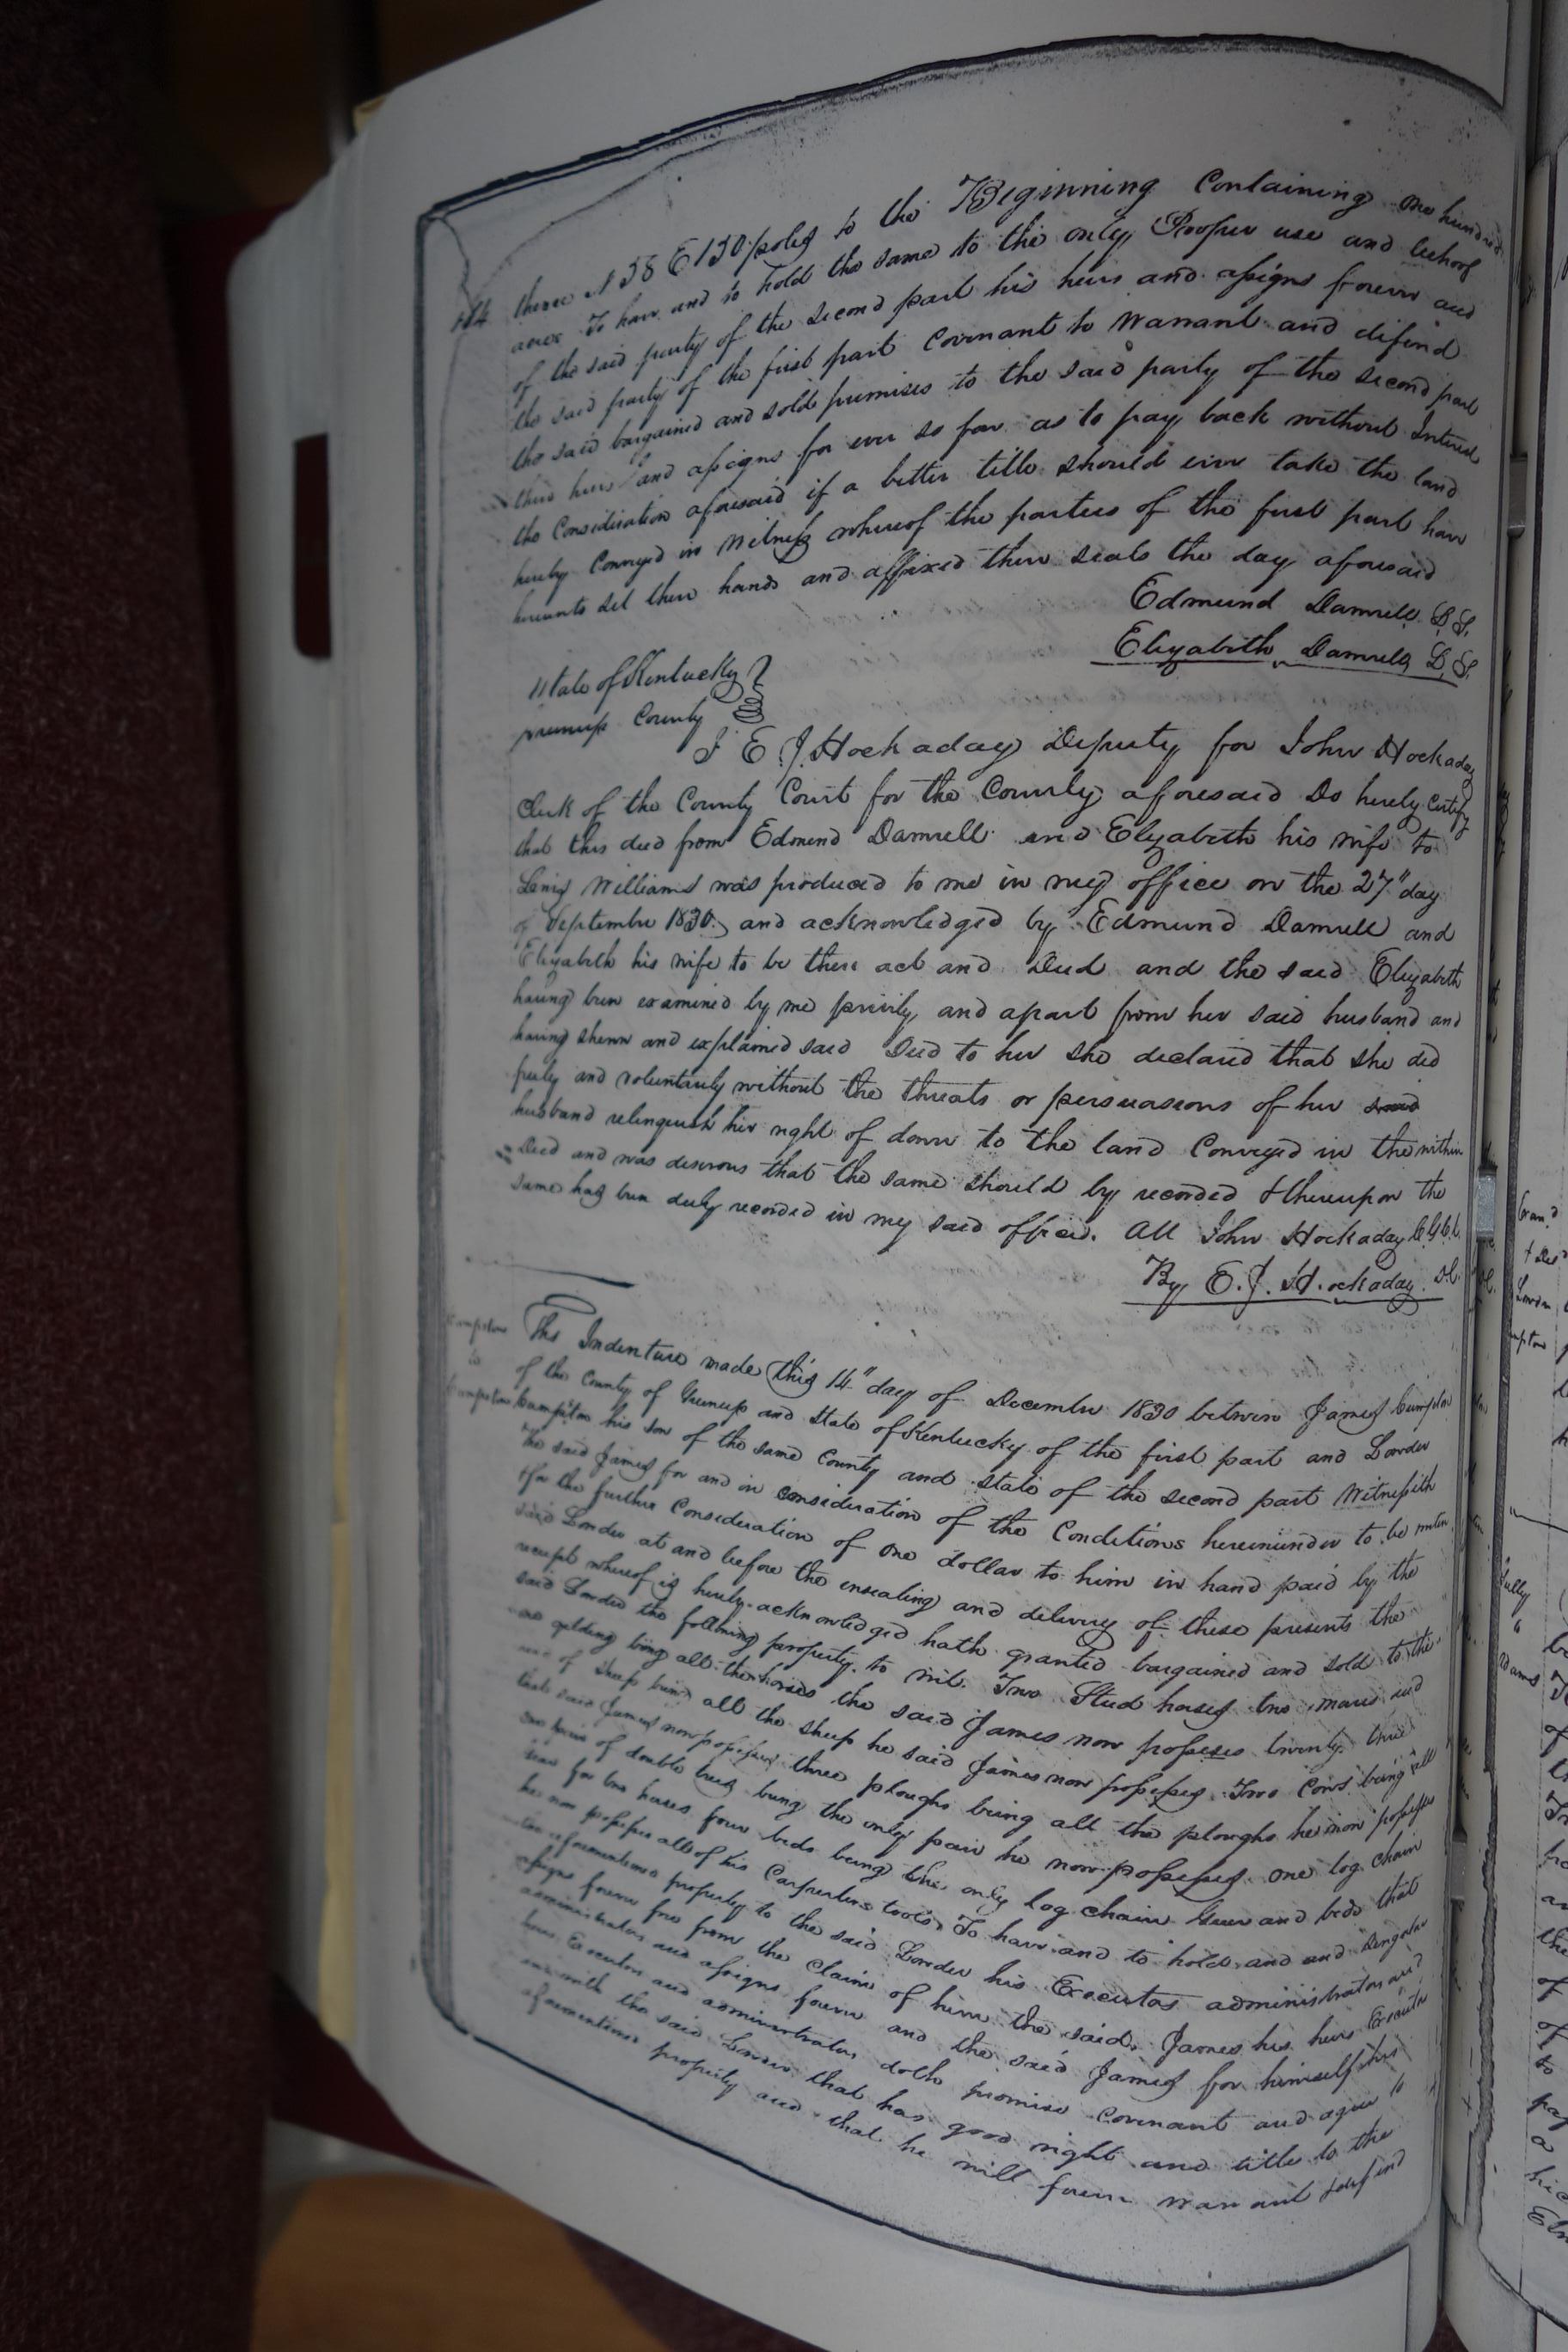 thence N 38 E 130 poles to the Beginning Containing one hundred
acres To have and to hold the same to the only Proper use and behoof
of the said party of the second part his heirs and assigns forever and
the said party of the first part Covenant to Warrant and defend
the said bargained and sold premises to the said party of the second part
their heirs and assigns for ever so far as to pay back without Interest
the Consideration aforesaid if a better title should ever take the land
hereby Conveyed in Witness whereof the parties of the first part have
hereunto set their hands and affixed their seals the day aforesaid
Edmund Damrell L,S,
Elizabeth Damrell L,S,
State of Kentucky
Greenup County
I E. J. Hockaday Deputy for John Hockaday
Clerk of the County Court for the County aforesaid Do hereby Certify
that this deed from Edmond Damrell and Elizabeth his wife to
Williams was produced to me in my office on the 27" day
of September 1830, and acknowledged by Edmund Damrell and
Elizabeth his wife to be their act and Deed and the said Elizabeth
having been examined by me privily and apart from her said husband and
having shewn and explained said Deed to her she declared that she did
freely and voluntarily without the threats or persuasions of her said
husband relinquish her right of dower to the land Conveyed in the within
Deed and was desirous that the same should by recorded & thereupon the
same has been duly recorded in my said office. Att John Hockaday C.G.C.C.
By E. J. Hockaday D.C.
Compton
to
Compton
This Indenture made this 14" day of December 1830 between James Compton
of the County of Greenup and State of Kentucky of the first part and Lowder
Compton his son of the same County and state of the second part Witnesseth
The said James for and in consideration of the Conditions hereinunder to be
&for the further Consideration of one dollar to him in hand paid by the
said Lowder at and before the ensealing and delivery of these presents the
receipt whereof is hereby acknowledged hath granted bargained and sold to the
said Lowder the following property to wit. Two Stud horses two mares and
one gelding being all the horses the said James now possesses twenty three
head of sheep being all the sheep he said James now possesses Two Cows being all
that said James now possesses three ploughs being all the ploughs he now possesses
one pair of double trees being the only pair he now possesses one log chain
Gear for two horses four beds being the only log chain Gear and beds that
he now possesses all of his Carpenters tools To have and to hold and and singular
the aforementioned property to the said Lowder his Executors administrators and
assigns forever free from the Claim of him the said James his heirs Executors
administrators and assigns forever and the said James for himself his
heirs Executors and administrators doth promise Covenant and agree to
and with the said Lowder that has good right and title to the
aforementioned property and that he will forever warrant & defend